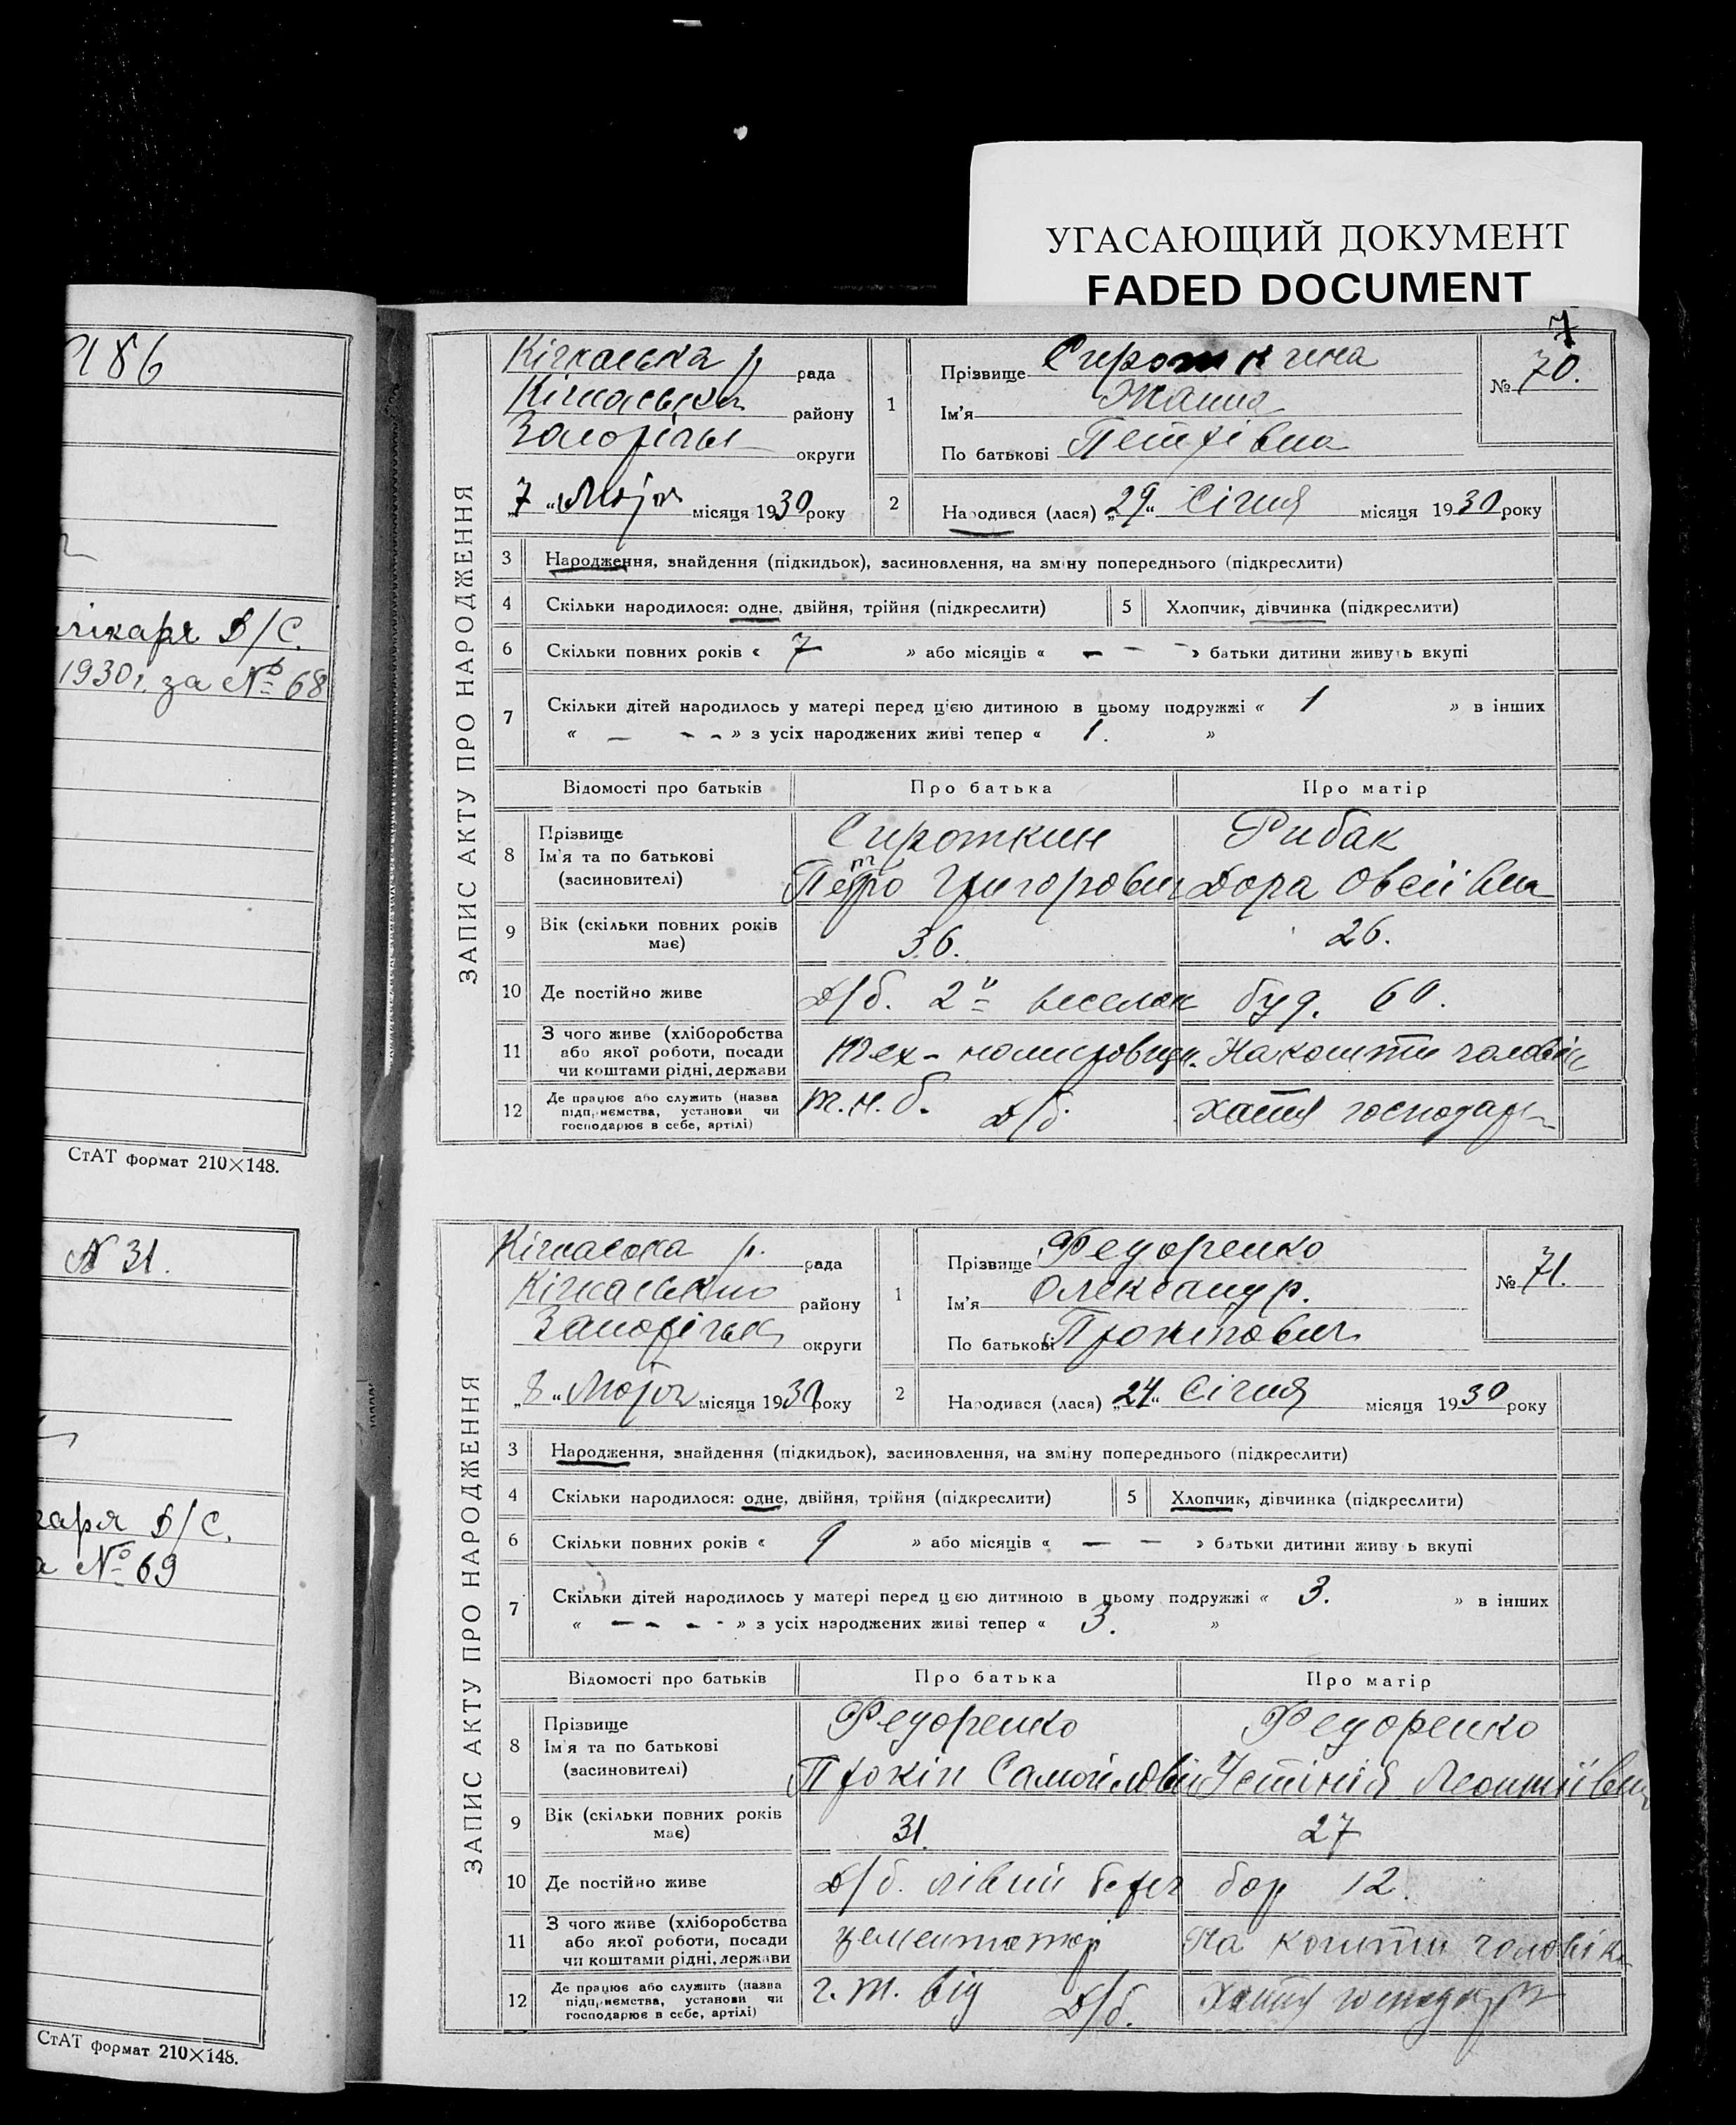 УГАСАЮЩИЙ ДОКУМЕНТ
FADED DOCUMENT
186
лікаря Д/С.
1930 г. за № 68
СтАТ формат 210×148.
N 31.
каря Д/С.
а № 69
СтАТ формат 210×148.
7
ЗАПИС АКТУ ПРО НАРОДЖЕННЯ
Кічкаська р рада
Кічкаська району
Запоріжськ округи
„7“ Маја місяця 1930 року
1 Прізвище Сироткина
Ім'я Жанна
По батькові Петрівна
№ 70.
2 Народився (лася) „29“ Січня місяця 1930 року
3 Народження, знайдення (підкидьок), засиновлення, на зміну попереднього (підкреслити)
4 Скільки народилося: одне, двійня, трійня (підкреслити) 5 Хлопчик, дівчинка (підкреслити)
6 Скільки повних років « 7 » або місяців « — — — » батьки дитини живуть вкупі
7 Скільки дітей народилось у матері перед цією дитиною в цьому подружжі « 1 » в інших
« — - - » з усіх народжених живі тепер « 1. »
Відомості про батьків Про батька Про матір
8 Прізвище Сироткин Рибак
Ім'я та по батькові
(засиновителі) Петро Григорович Дора Овсіївна
9 Вік (скільки повних років
має) 36. 26.
10 Де постійно живе Д/б. 2й веселок буд. 60.
11 З чого живе (хліборобства
або якої роботи, посади На кошти чоловік
чи коштами рідні, держави
12 Де працює або служить (назва
підприємства, установи чи т.н.б. Д/б. Хатня господарк
господарює в себе, артілі)
ЗАПИС АКТУ ПРО НАРОДЖЕННЯ
Кічкаська р. рада
Кічкаського району
Запоріжськ округи
„8“ Маја місяця 1930 року
1 Прізвище Федоренко
Ім'я Олександр.
По батькові Прокопович
№ 71.
2 Народився (лася) „24“ Січня місяця 1930 року
3 Народження, знайдення (підкидьок), засиновлення, на зміну попереднього (підкреслити)
4 Скільки народилося: одне, двійня, трійня (підкреслити) 5 Хлопчик, дівчинка (підкреслити)
6 Скільки повних років « 9 » або місяців « — — » батьки дитини живуть вкупі
7 Скільки дітей народилось у матері перед цією дитиною в цьому подружжі « 3. » в інших
« — - - - » з усіх народжених живі тепер « 3. »
Відомості про батьків Про батька Про матір
8 Прізвище Федоренко Федоренко
Ім'я та по батькові
(засиновителі) Прокіп Самойлович Устінія Леонтіївна
9 Вік (скільки повних років
має) 31. 27
10 Де постійно живе Д/б. лівий берег бар 12.
11 З чого живе (хліборобства
або якої роботи, посади цементатор На кошти чоловіка
чи коштами рідні, держави
12 Де працює або служить (назва
підприємства, установи чи г.т. від Д/б. Хатня господарк
господарює в себе, артілі)